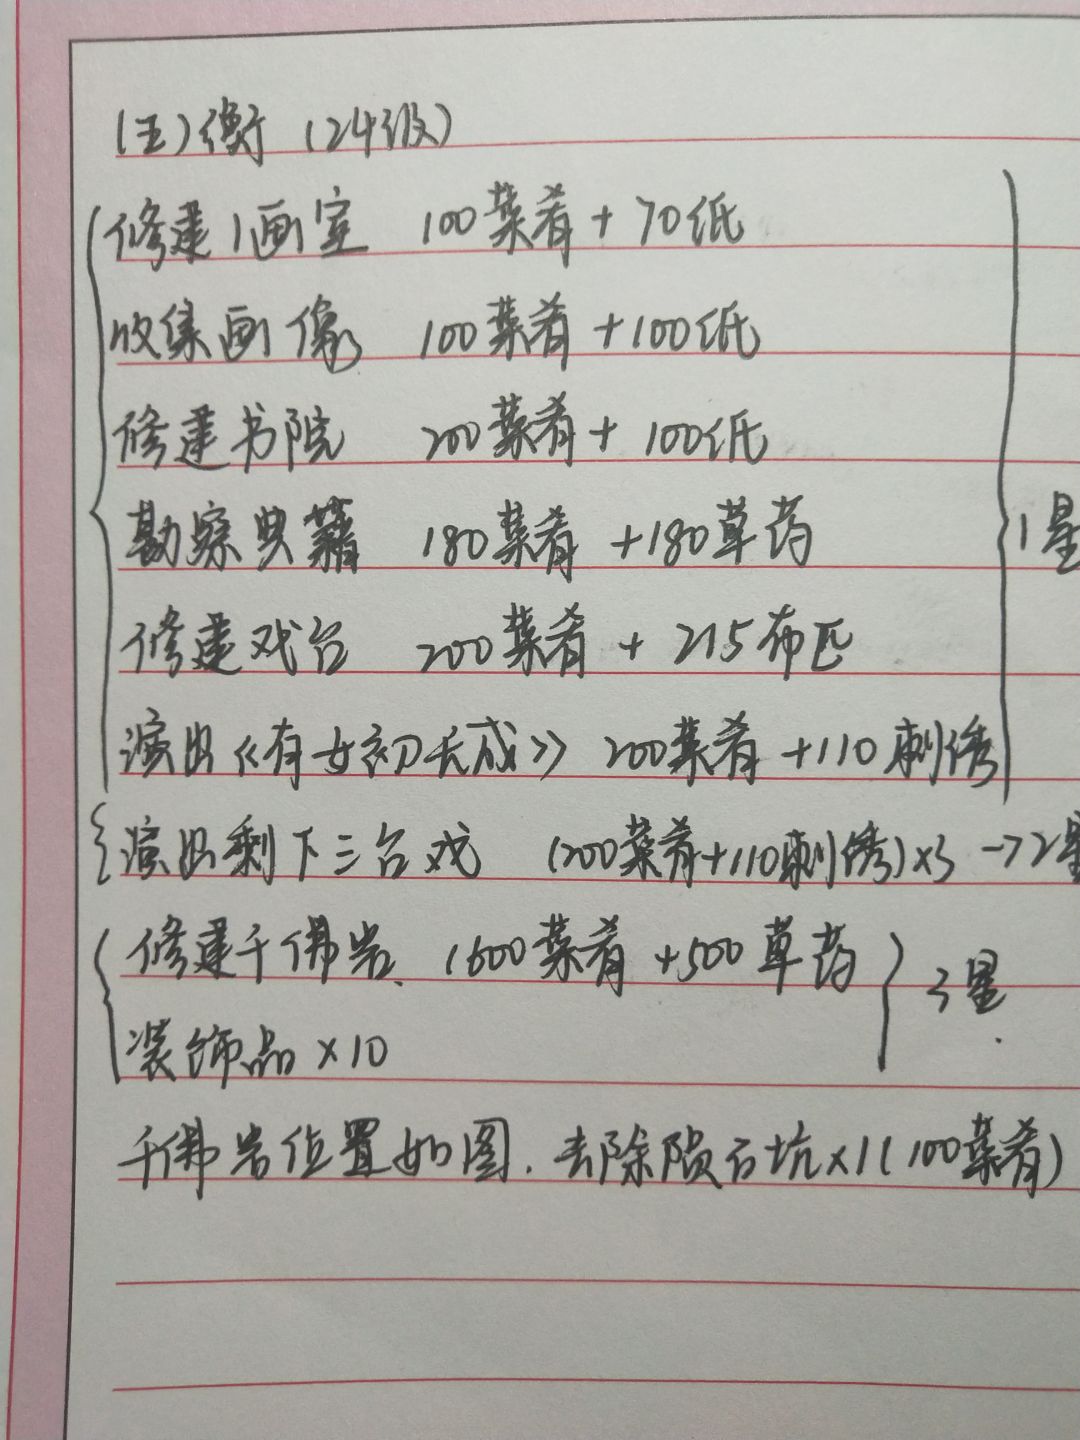 (五)衡 (24级)
修建1画室 100菜肴+70纸
收集画像 100菜肴+100纸
修建书院 200菜肴+100纸
勘察典籍 180菜肴+180草药
1星
修建戏台 200菜肴+215布匹
演出《有女初长成》 200菜肴+110刺绣
演出剩下三台戏 (200菜肴+110刺绣)×3→2星
修建千佛岩、1600菜肴+500草药
3星
装饰品×10
千佛岩位置如图.去除陨石坑×1(100菜肴)